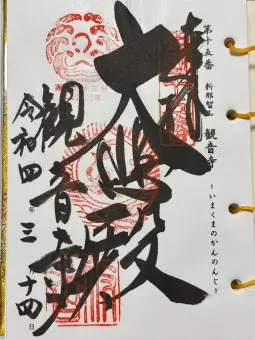 第十五番 新那智山 観音寺
~いまくまのかんのんじ~
奉拝
大悲殿
観音寺
令和四年三月十四日